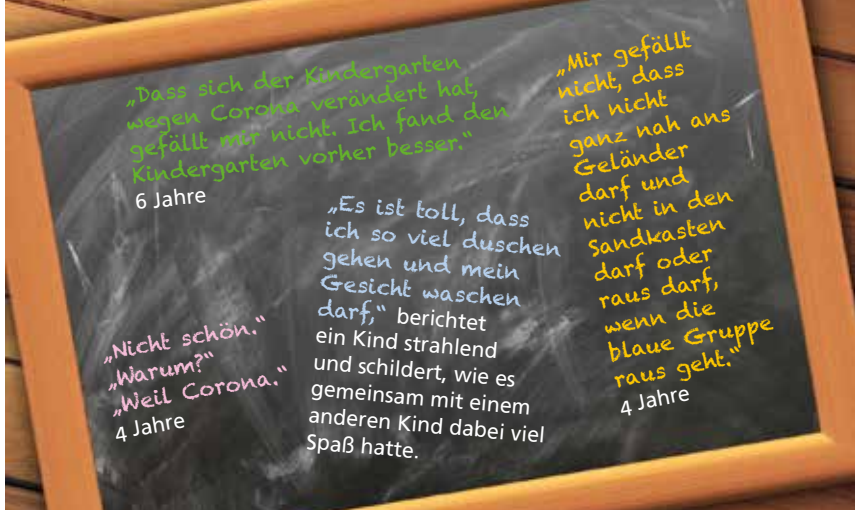 „Dass sich der Kindergarten
wegen Corona verändert hat,
gefällt mir nicht. Ich fand den
Kindergarten vorher besser.“
6 Jahre
„Nicht schön.“
„Warum?“
„Weil Corona.“
4 Jahre
„Es ist toll, dass
ich so viel duschen
gehen und mein
Gesicht waschen
darf,“ berichtet
ein Kind strahlend
und schildert, wie es
gemeinsam mit einem
anderen Kind dabei viel
Spaß hatte.
„Mir gefällt
nicht, dass
ich nicht
ganz nah ans
Geländer
darf und
nicht in den
Sandkasten
darf oder
raus darf,
wenn die
blaue Gruppe
raus geht.“
4 Jahre